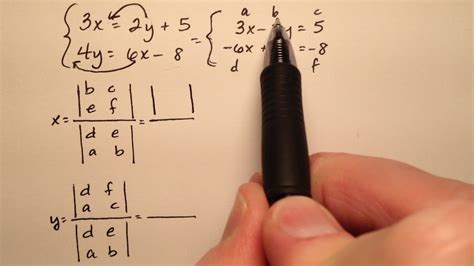 a b c
3x = 2y + 5
4y = 6x - 8
= 3x - y = 5
-6x + = -8
d f
x = |b c| = | |
|e f|
|d e|
|a b|
y = |d f| =
|a c|
|d e|
|a b|